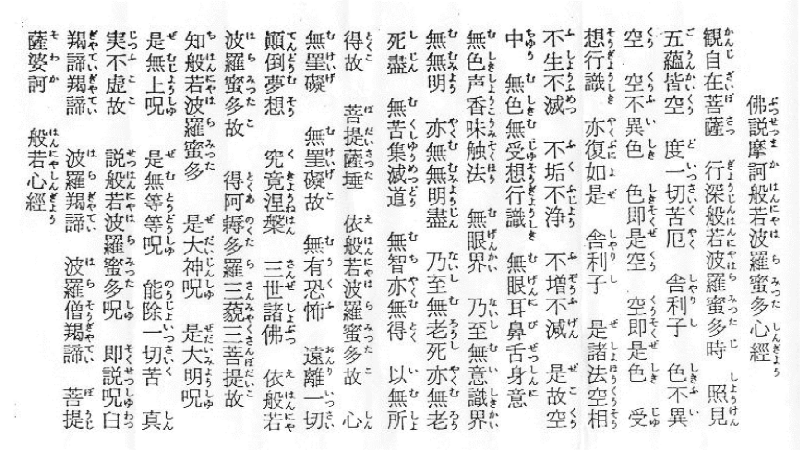 佛説摩訶般若波羅蜜多心經
観自在菩薩　行深般若波羅蜜多時　照見
五蘊皆空　度一切苦厄　舎利子　色不異
空　空不異色　色即是空　空即是色　受
想行識　亦復如是　舎利子　是諸法空相
不生不滅　不垢不浄　不増不滅　是故空
中　無色無受想行識　無眼耳鼻舌身意
無色声香味触法　無眼界　乃至無意識界
無無明　亦無無明盡　乃至無老死亦無老
死盡　無苦集滅道　無智亦無得　以無所
得故　菩提薩埵　依般若波羅蜜多故　心
無罣礙　無罣礙故　無有恐怖　遠離一切
顛倒夢想　究竟涅槃　三世諸佛　依般若
波羅蜜多故　得阿耨多羅三藐三菩提故
知般若波羅蜜多　是大神呪　是大明呪
是無上呪　是無等等呪　能除一切苦　真
実不虚故　説般若波羅蜜多呪　即説呪曰
羯諦羯諦　波羅羯諦　波羅僧羯諦　菩提
薩婆訶　般若心經